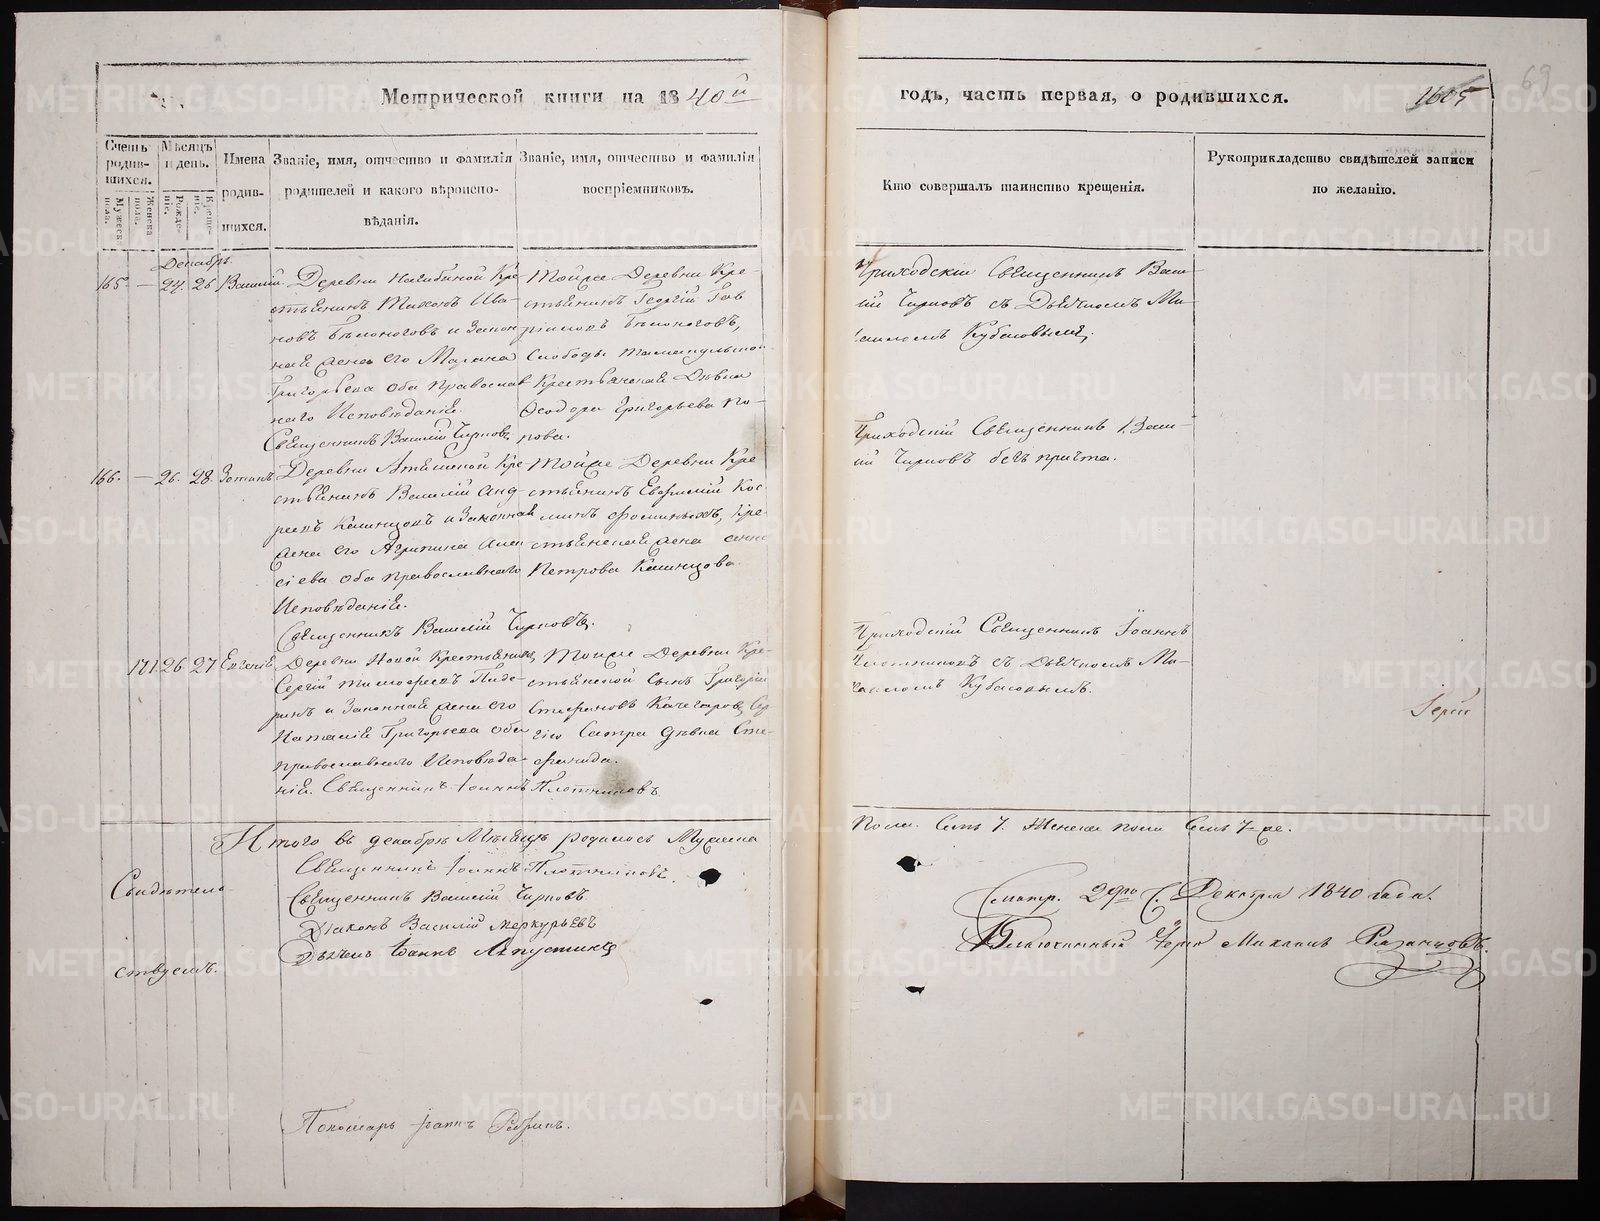 Метрической книги на 1840й
годъ, часть первая, о родившихся.
1605
69
Счетъ родив-шихся.
Мужеска пола.
Женска пола.
Мѣсяцъ и день.
Рожде-нiе.
Креще-нiе.
Имена родив-шихся.
Званiе, имя, отчество и фамилiя родителей и какого вѣроиспо-вѣданiя.
Званiе, имя, отчество и фамилiя воспрiемниковъ.
Кто совершалъ таинство крещенiя.
Рукоприкладство свидѣтелей записи по желанiю.
Декабрь
165. — 24. 26. Василiй
Деревни Кре-
стьянинъ Тихонъ Ива-
новъ Бѣлоноговъ и Закон
ная жена его Марина
Григорьева оба православ
наго Исповѣданiя.
Священникъ Василiй Чирковъ
Тойже Деревни Кре-
стьянинъ Георгiй Гав
рiиловъ Бѣлоноговъ,
Слободы
Крестьянская Дѣвка
Ѳеодора Григорьева По-
пова.
Приходскiй Священникъ Васи-
лiй Чирковъ съ Дьячкомъ Ми-
хаиломъ Кубасовымъ.
166. — 26. 28. Зотикъ
Деревни Кре
стьянинъ Василiй Анд-
реевъ Кашинцовъ и Законная
жена его Агрипина Алек
сiева оба православнаго
Исповѣданiя.
Священникъ Василiй Чирковъ.
Тойже Деревни Кре
стьянинъ Евфимiй Кос
минъ Фоминыхъ, Кре-
стьянская жена Анна
Петрова Кашинцова.
Приходскiй Священникъ Васи-
лiй Чирковъ безъ причта.
171. 26. 27. Евгенiя
Деревни Новой Крестьянинъ
Сергiй Тимофеевъ
и Законная жена его
Наталiя Григорьева оба
православнаго Исповѣда-
нiя. Священникъ Iоаннъ Плотниковъ.
Тойже Деревни Кре-
стьянской сынъ Григорiй
Стефановъ
гiю Сестра дѣвка Сте-
фанида.
Приходскiй Священникъ Iоаннъ
Плотниковъ съ Дьячкомъ Ми-
хаиломъ Кубасовымъ.
Iерей
Итого въ декабрѣ Мѣсяцѣ родилось Мужеска
пола. Семь 7. Женска пола Семь 7-же.
Свидѣтель-
ствуемъ.
Священникъ Iоаннъ Плотниковъ.
Священникъ Василiй Чирковъ
Дiаконъ Василiй Меркурьевъ
Дьячекъ Iоаннъ Ляпустинъ
Пономарь Iоаннъ
Смотр. 29го Декабря 1840 года.
Благочинный Iерей Михаилъ Рязанцовъ.